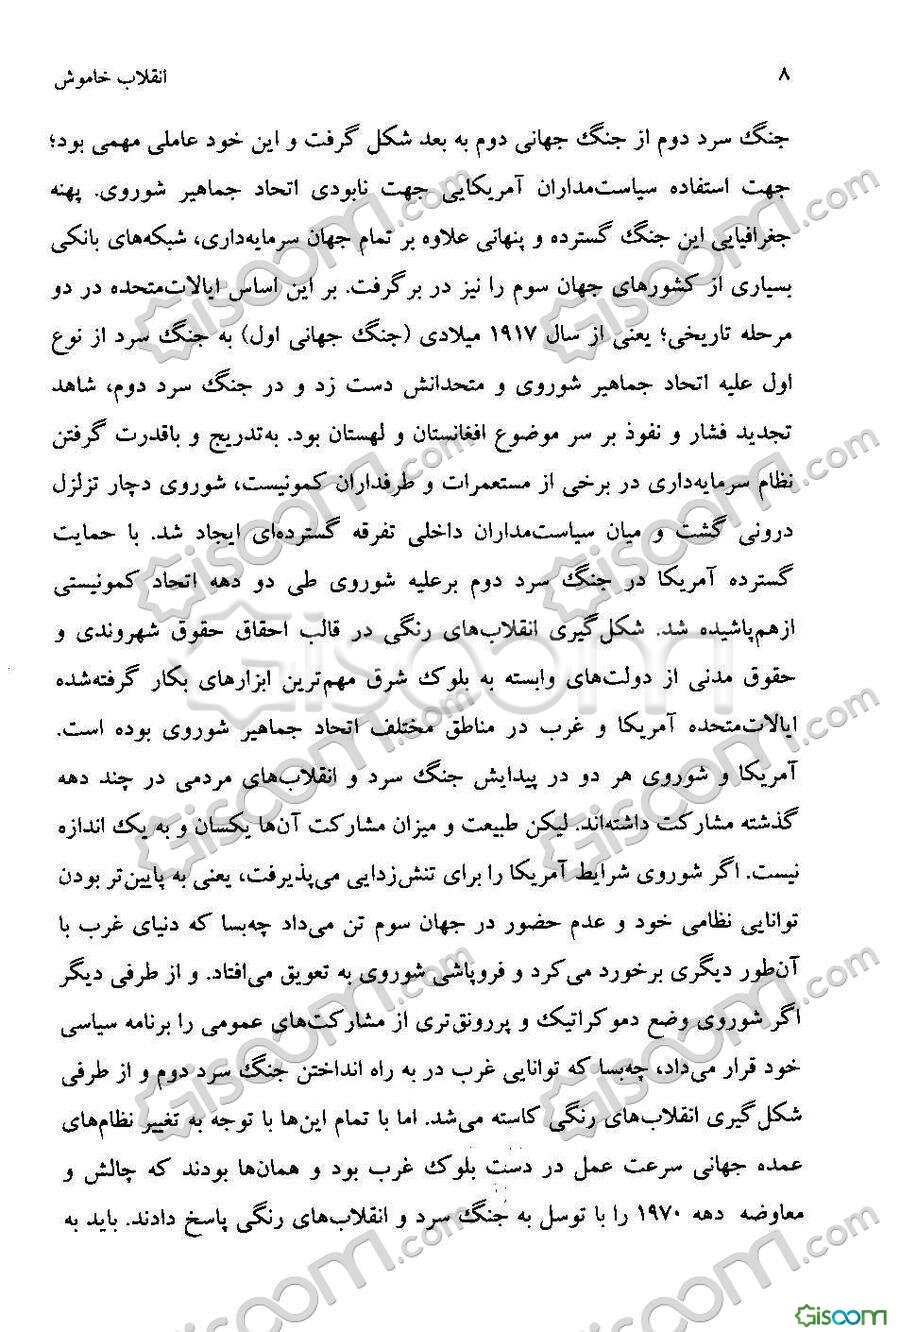 ۸ انقلاب خاموش
جنگ سرد دوم از جنگ جهانی دوم به بعد شکل گرفت و این خود عاملی مهمی بود؛
جهت استفاده سیاست‌مداران آمریکایی جهت نابودی اتحاد جماهیر شوروی. پهنه
جغرافیایی این جنگ گسترده و پنهانی علاوه بر تمام جهان سرمایه‌داری، شبکه‌های بانکی
بسیاری از کشورهای جهان سوم را نیز در برگرفت. بر این اساس ایالات‌متحده در دو
مرحله تاریخی؛ یعنی از سال ۱۹۱۷ میلادی (جنگ جهانی اول) به جنگ سرد از نوع
اول علیه اتحاد جماهیر شوروی و متحدانش دست زد و در جنگ سرد دوم، شاهد
تجدید فشار و نفوذ بر سر موضوع افغانستان و لهستان بود. به‌تدریج و باقدرت گرفتن
نظام سرمایه‌داری در برخی از مستعمرات و طرفداران کمونیست، شوروی دچار تزلزل
درونی گشت و میان سیاست‌مداران داخلی تفرقه گسترده‌ای ایجاد شد. با حمایت
گسترده آمریکا در جنگ سرد دوم برعلیه شوروی طی دو دهه اتحاد کمونیستی
ازهم‌پاشیده شد. شکل‌گیری انقلاب‌های رنگی در قالب احقاق حقوق شهروندی و
حقوق مدنی از دولت‌های وابسته به بلوک شرق مهم‌ترین ابزارهای بکار گرفته‌شده
ایالات‌متحده آمریکا و غرب در مناطق مختلف اتحاد جماهیر شوروی بوده است.
آمریکا و شوروی هر دو در پیدایش جنگ سرد و انقلاب‌های مردمی در چند دهه
گذشته مشارکت داشته‌اند. لیکن طبیعت و میزان مشارکت آن‌ها یکسان و به یک اندازه
نیست. اگر شوروی شرایط آمریکا را برای تنش‌زدایی می‌پذیرفت، یعنی به پایین‌تر بودن
توانایی نظامی خود و عدم حضور در جهان سوم تن می‌داد چه‌بسا که دنیای غرب با
آن‌طور دیگری برخورد می‌کرد و فروپاشی شوروی به تعویق می‌افتاد. و از طرفی دیگر
اگر شوروی وضع دموکراتیک و پررونق‌تری از مشارکت‌های عمومی را برنامه سیاسی
خود قرار می‌داد، چه‌بسا که توانایی غرب در به راه انداختن جنگ سرد دوم و از طرفی
شکل‌گیری انقلاب‌های رنگی کاسته می‌شد. اما با تمام این‌ها با توجه به تغییر نظام‌های
عمده جهانی سرعت عمل در دست بلوک غرب بود و همان‌ها بودند که چالش و
معاوضه دهه ۱۹۷۰ را با توسل به جنگ سرد و انقلاب‌های رنگی پاسخ دادند. باید به
Gisoom.com
Gisoom